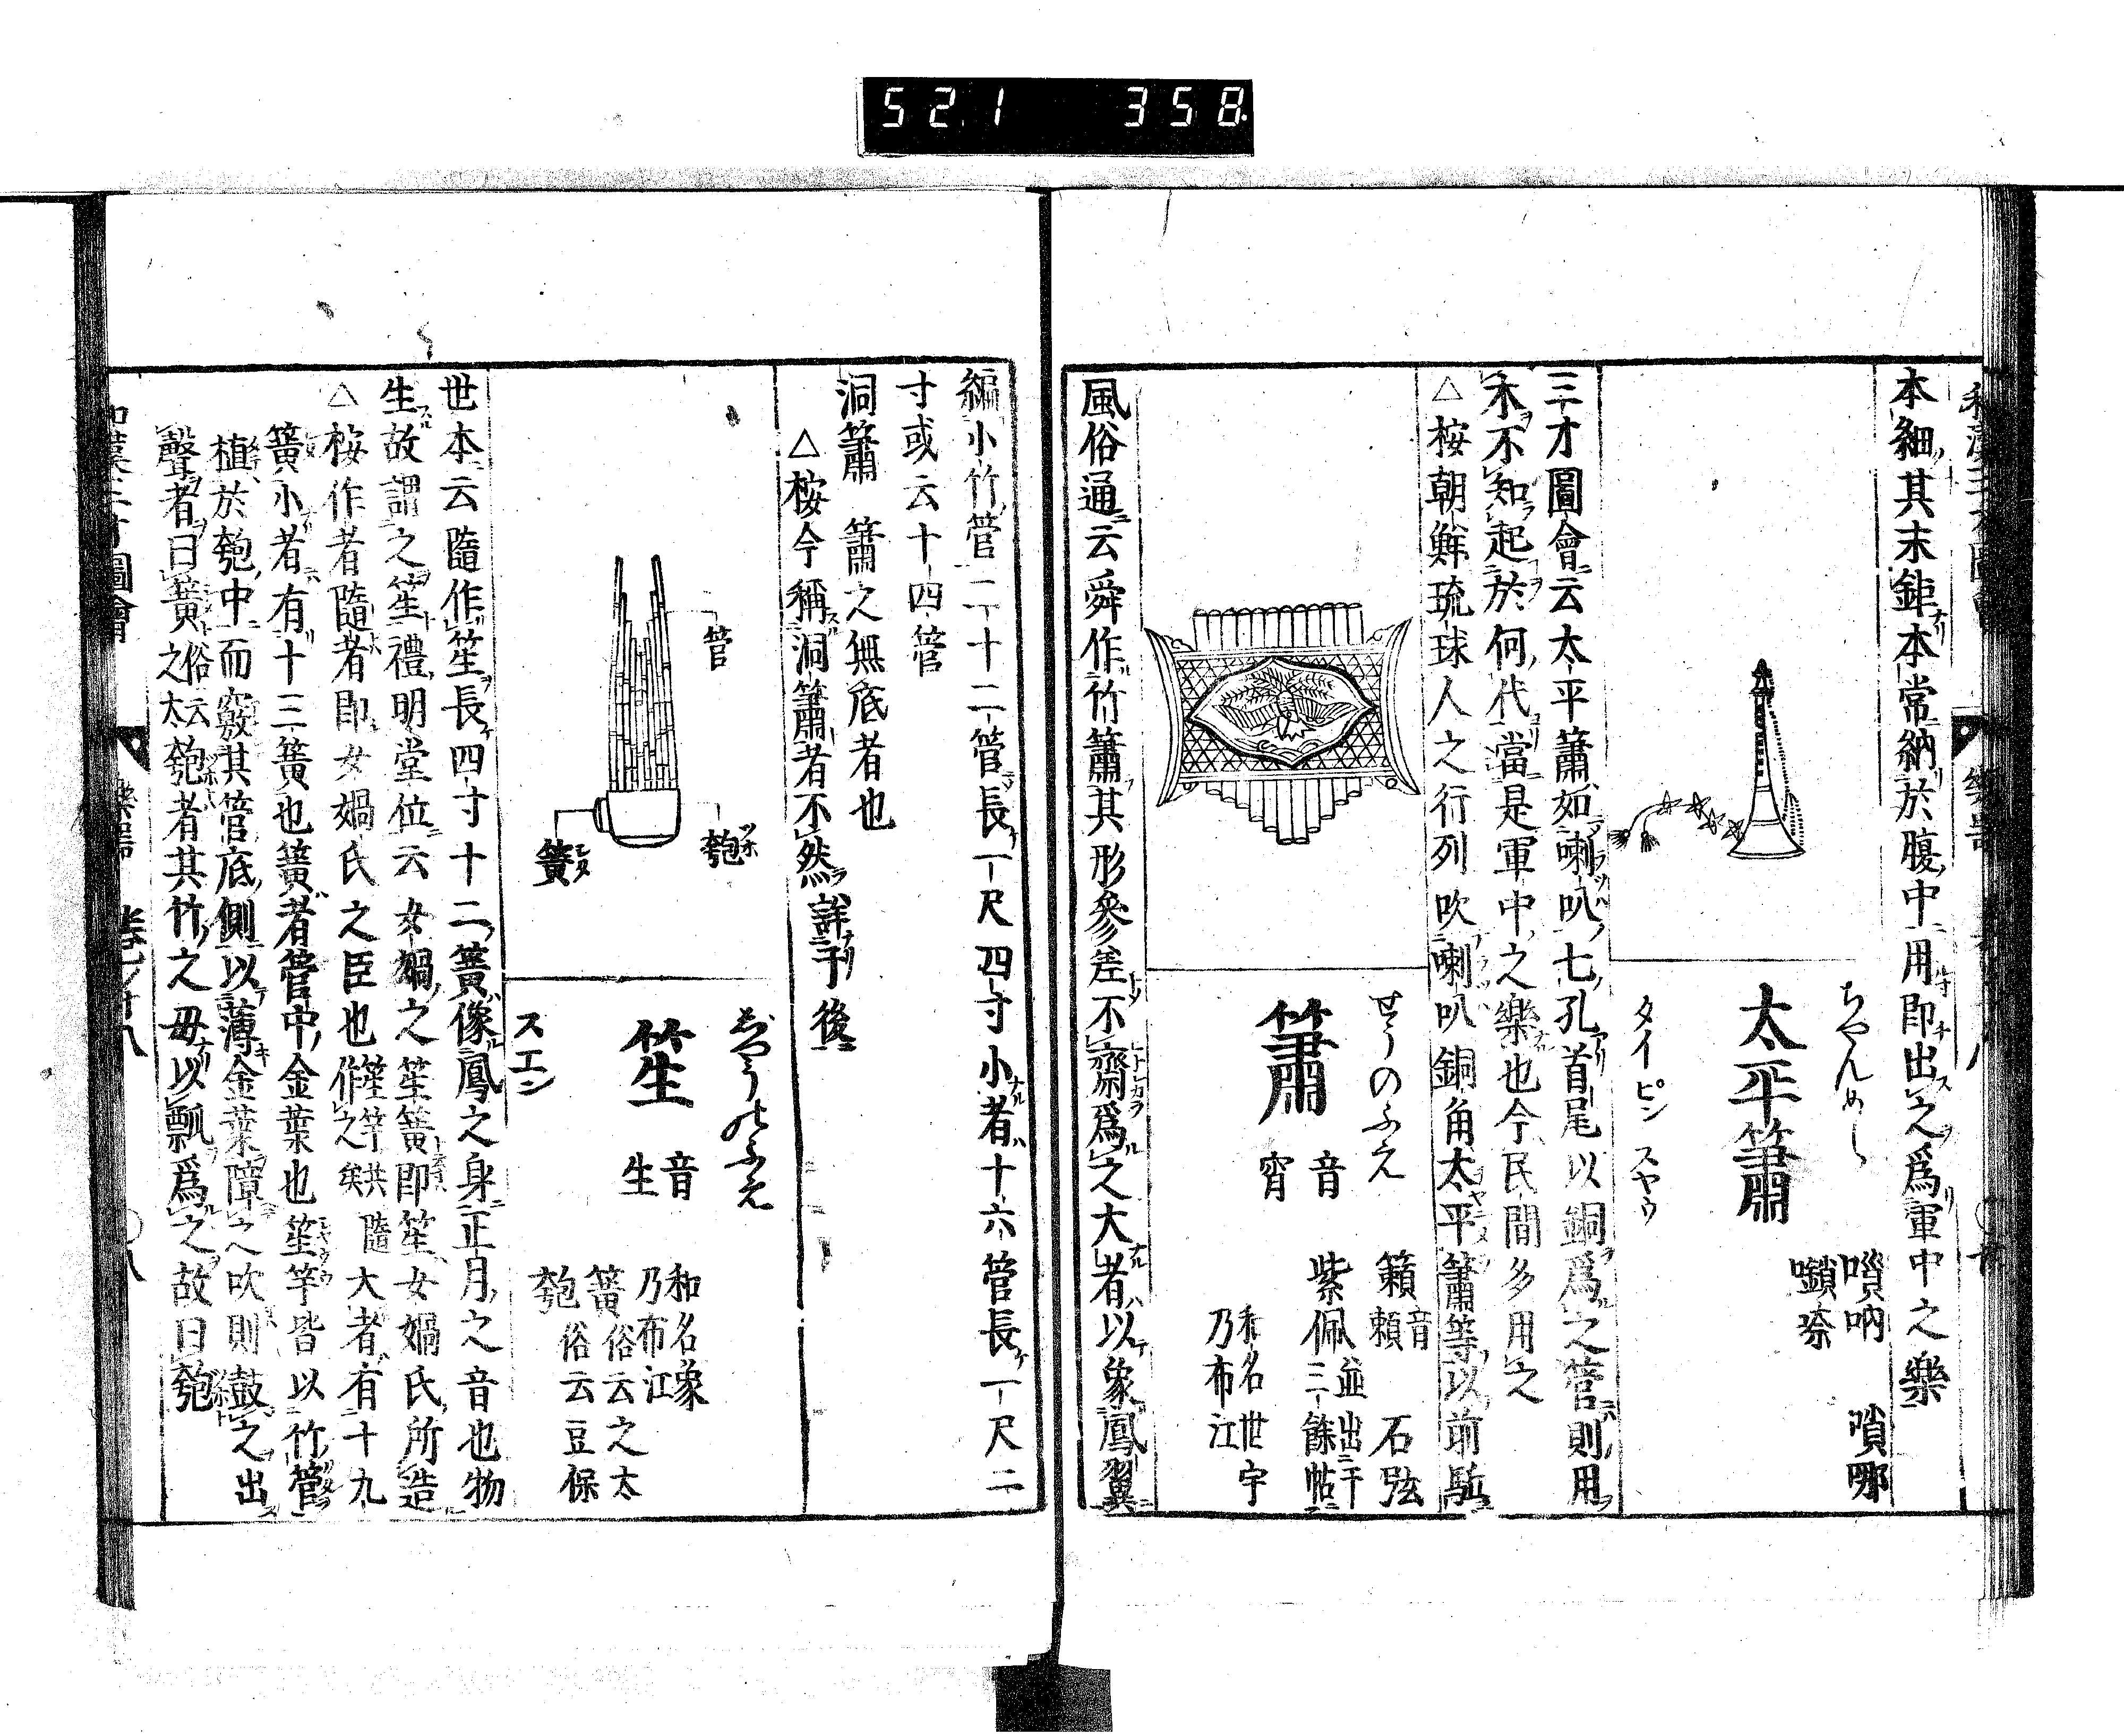 521 358
本細其末鉅本常納於腹中用即出之爲軍中之樂
ちやんめら
太平簫
タイピン スヤウ
嗩吶 嗩哪
三才圖會云太平簫如喇叭七孔首尾以銅爲之管則用
木不知起於何代當是軍中之樂也今民間多用之
△桉朝鮮琉球人之行列吹喇叭銅角太平簫等以前駈
せうのふえ
簫 音宵
籟 音頼 石弦
紫佩 並出三才
三餘帖
和名世宇
乃布江
風俗通云舜作竹簫其形參差不齊爲之大者以象鳳翼
編小竹管二十二管長一尺四寸小者十六管長一尺二
寸或云十四管
洞簫 簫之無底者也
△桉今稱洞簫者不然詳于後
管
匏
簧
しやうのふえ
笙 音生
スエン
和名象
乃布江
簧 俗云之太
匏 俗云豆保
世本云隨作笙長四寸十二簧像鳳之身正月之音也物
生故謂之笙禮明堂位云女媧之笙簧即笙女媧氏所造
△桉作者隨者即女媧氏之臣也 笙竽共隨作之矣 大者有十九
簧小者有十三簧也簧者管中金葉也笙竽皆以竹管
植於匏中而竅其管底側以薄金葉障之吹則鼓之出
聲者曰簧 俗云之太 匏者其竹之母以瓢爲之故曰匏
和漢三才圖會 樂器